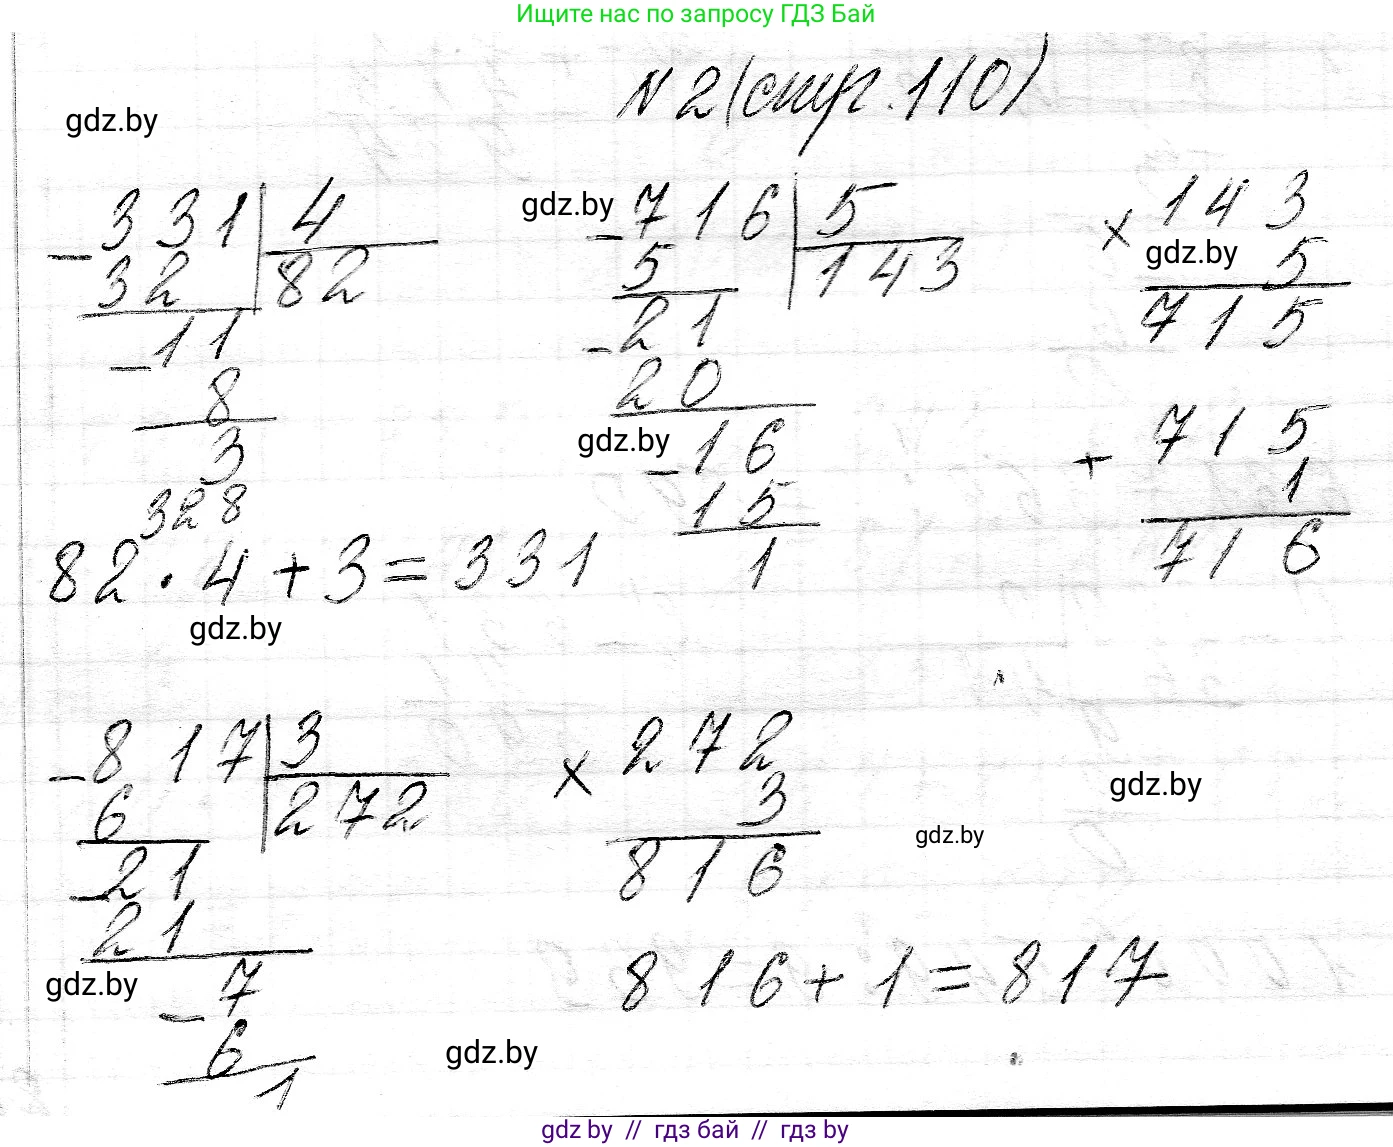 Ищите нас по запросу ГДЗ Бай
N 2 (стр. 110)
gdz.by
- 331 | 4
32 | 82
- 11
8
3
328
82 · 4 + 3 = 331
gdz.by
gdz.by
- 716 | 5
5 | 143
- 21
20
gdz.by
- 16
15
1
× 143
gdz.by
5
715
+ 715
1
716
- 817 | 3
6 | 272
- 21
21
gdz.by
- 7
6
1
× 272
3
816
gdz.by
gdz.by
816 + 1 = 817
gdz.by
gdz by // гдз бай // гдз by